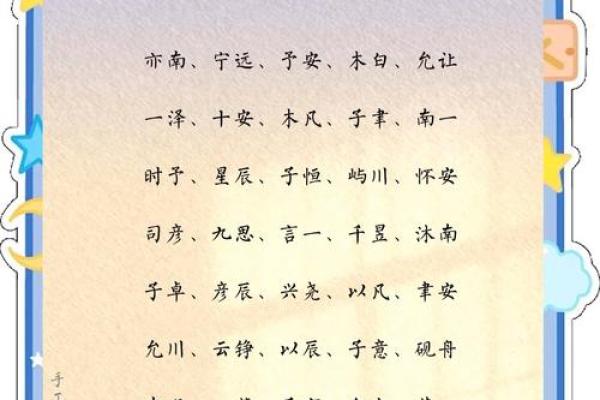 亦南、宁远、予安、木白、允让
一泽、十安、木凡、子聿、南一
时予、星辰、子恒、屿川、怀安
司彦、九思、言一、千昱、沐南
子卓、彦辰、兴尧、以凡、聿安
允川、云铮、以辰、子意、砚舟
手